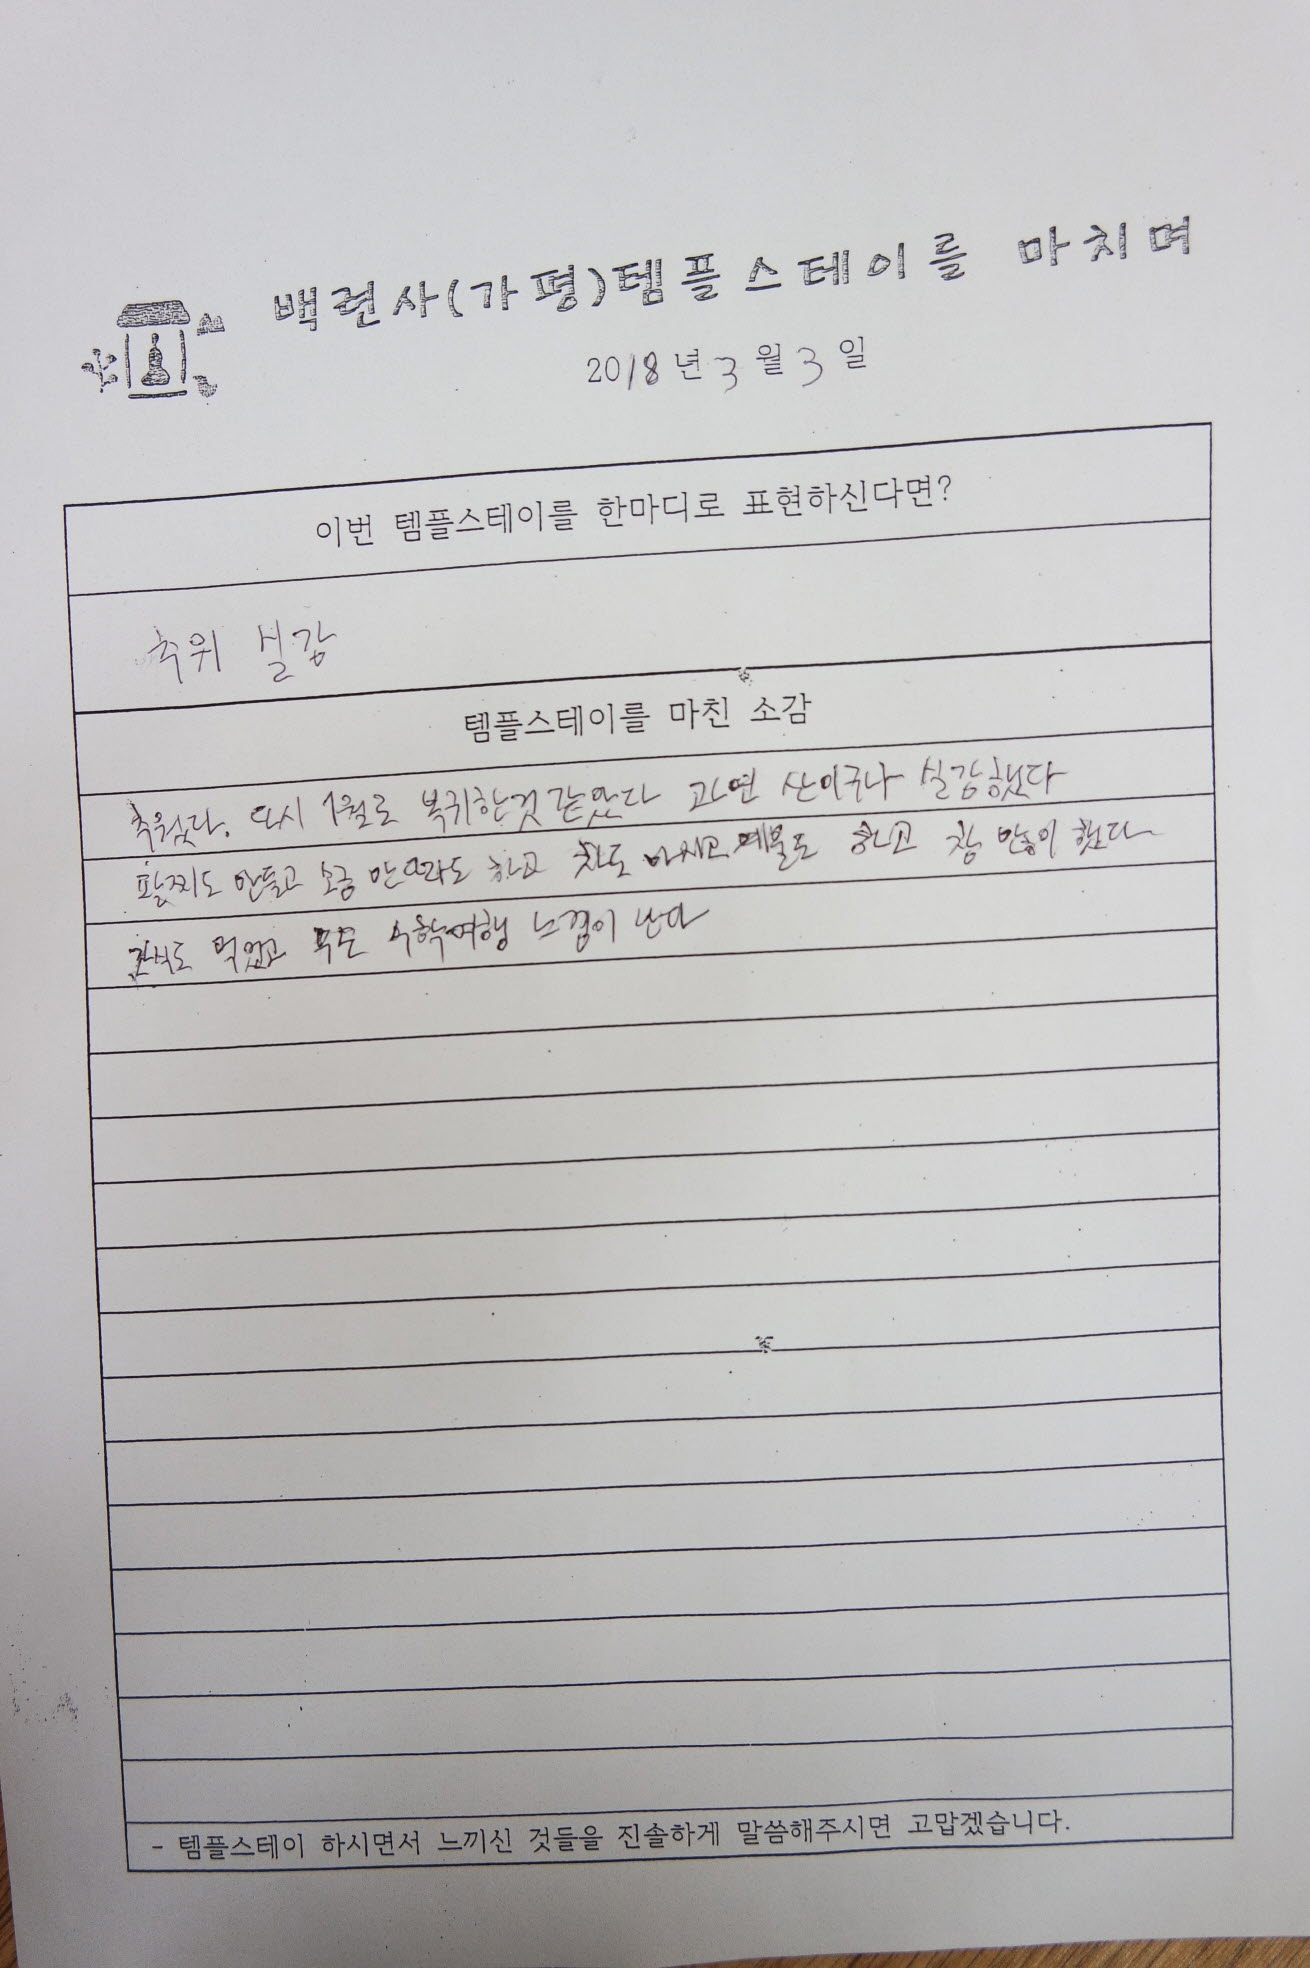 백련사(가평)템플스테이를 마치며
2018년 3월 3일
이번 템플스테이를 한마디로 표현하신다면?
추위 실감
템플스테이를 마친 소감
추웠다. 다시 1월로 복귀한것 같았다 과연 산이구나 실감했다
팔찌도 만들고 소금 만다라도 하고 차도 마시고 예불도 하고 참 많이 했다
간식도 먹었고 수학여행 느낌이 난다
- 템플스테이 하시면서 느끼신 것들을 진솔하게 말씀해주시면 고맙겠습니다.